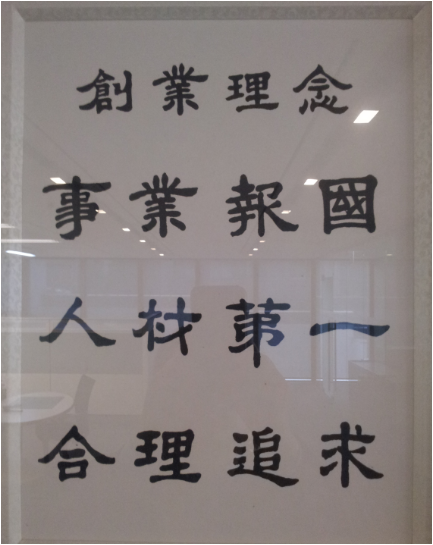 創業理念
事業報國
人材第一
合理追求